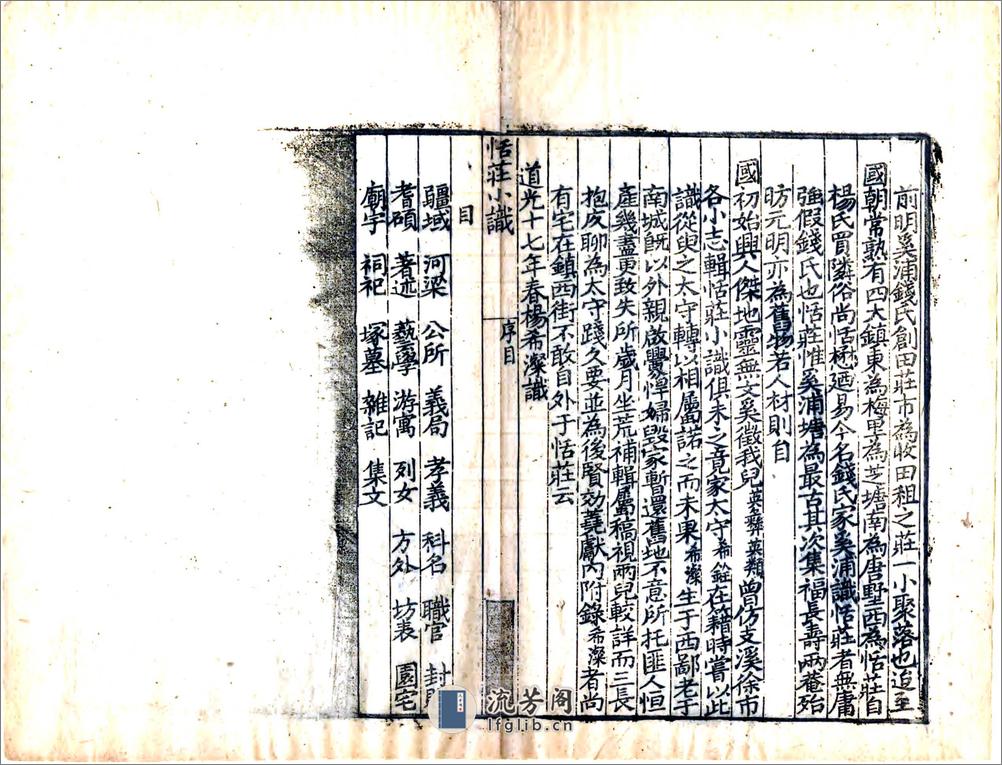 前明奚浦錢氏創田莊市為收田租之莊一小聚落也迨至
國朝常熟有四大鎮東為梅里為芝塘南為唐野西為恬莊自
楊氏買隣俗尚恬懋迺易今名錢氏家奚浦識恬莊者無庸
強假錢氏也恬莊惟奚浦塘為最古其次集福長壽兩菴始
昉元明亦為舊物若人材則目
國初始興人傑地靈無文奚徵我兒英彝英類曾仿支溪徐市
各小志輯恬莊小識俱未之竟家太守希銓在籍時嘗以此
識從臾之太守轉以相屬諾之而未果希澯生于西鄙老于
南城旣以外親啟釁悍婦毀家暫還舊地不意所托匪人恒
產幾盡更致失所歲月坐荒補輯屬稿視兩兒較詳而三長
抱皮聊為太守踐久要並為後賢効蕘獻內附錄希澯者尚
有宅在鎮西街不敢自外于恬莊云
道光十七年春楊希澯識
恬莊小識
序目
目
疆域 河梁 公所 義局 孝義 科名 職官 封
耆碩 著述 藝學 游寓 列女 方外 坊表 園宅
廟宇 祠祀 塚墓 雜記 集文
流芳阁
lfglib.cn